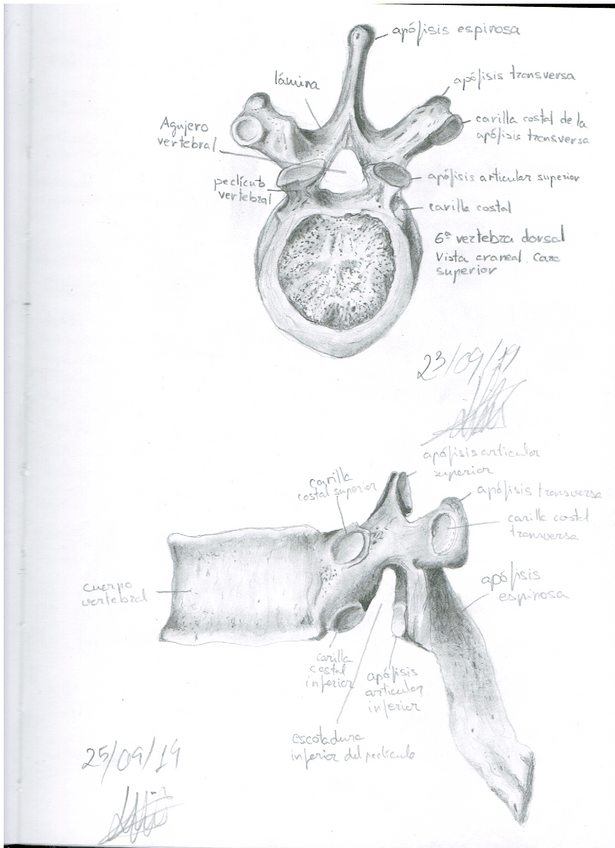 apófisis espinosa
lámina
apófisis transversa
Agujero
vertebral
carilla costal de la
apófisis transversa
pedículo
vertebral
apófisis articular superior
carilla costal
6ª vertebra dorsal
Vista craneal. Cara
superior
23/09/19
apófisis articular
superior
carilla
costal superior
apófisis transversa
carilla costal
transversa
cuerpo
vertebral
apófisis
espinosa
carilla
costal
inferior
apófisis
articular
inferior
escotadura
inferior del pedículo
25/09/19